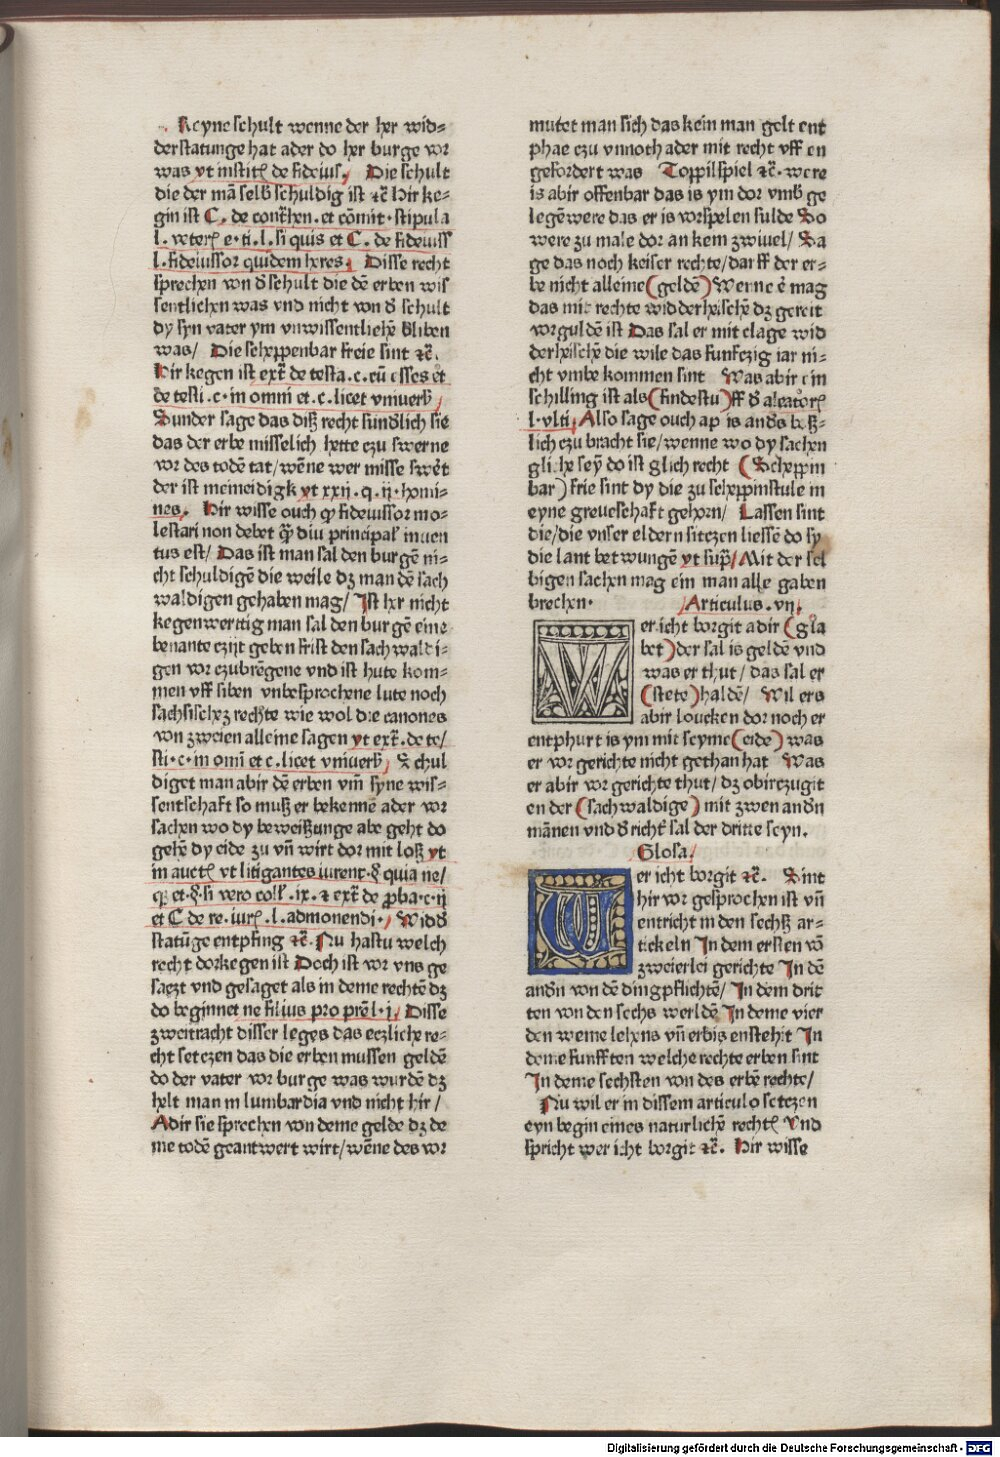 Keyne schult wenne der her wid⸗
derstatunge hat ader do her burge vor
was yt instit̄ de fideius. Die schult
die der mā selb schuldig ist ⁊c̄ Hir ke⸗
gin ist C. de cont̄hen. et cōmit. stipula
l. veter̄ e. ti. l. si quis et C. de fideiuss
l. fideiussor quidem heres. Disse recht
sprechen von d' schult die dē erben wis
sentlichen was vnd nicht von d' schult
dy syn vater ym vnwissentlichē bliben
was/ Die scheppenbar freie sint ⁊c̄.
Hir kegen ist ext̄ de testa. c. cū esses et
de testi. c. in omni et. c. licet vniuers/
Sunder sage das diß recht sund'lich sie
das der erbe misselich hette czu swerne
vor des todē tat/ wēne wer misse swe't
der ist meineidigk yt xxij. q. ij. homi⸗
nes. Hir wisse ouch ꝙ fideiussor mo⸗
lestari non debet q̄ diu principal' inuen
tus est/ Das ist man sal den burgē ni⸗
cht schuldigē die weile dz man dē sach
waldigen gehaben mag/ Ist her nicht
kegenwerttig man sal den burgē eine
benante czijt geben frist den sach waldi⸗
gen vor czubrēgene vnd ist hute kom⸗
men vff siben vnbesprochene lute noch
sachsischez rechte wie wol die canones
von zweien alleine sagen yt ext̄. de te/
sti. c. in omī et c. licet vniuers/ Schul
diget man abir dē erben vm̄ syne wis⸗
sentschaft so muß er bekennē ader vor
sachen wo dy beweißunge abe geht do
gehē dy eide zu vn̄ wirt dor mit loß yt
in auct̄ vt litigantes iurent. § quia ne/
q̄ et. §. si vero coll'. ix. ⁊ ext̄ de ꝓba. c. ij
et C de re. iur̄. l. admonendi. Widd'
statūge entpfing ⁊c̄. Nu hastu welch
recht dorkegen ist Doch ist vor vns ge
saczt vnd gesaget als in deme rechtē dz
do beginnet ne filius pro prē l. j. Disse
zweitracht disser leges das eczliche re⸗
cht setczen das die erben mussen geldē
do der vater vor burge was wurdē dz
helt man in lumbardia vnd nicht hir/
Adir sie sprechen von deme gelde dz de
me todē geantwert wirt/ wēne des vor
mutet man sich das kein man gelt ent
phae czu vnnoth ader mit recht vff en
gefordert was Toppilspiel ⁊c̄. were
is abir offenbar das is ym dor vmb ge
legē were das er is vorspelen sulde So
were zu male dor an kem zwiuel/ Sa
ge das noch keiser rechte/ darff der er⸗
be nicht alleine (geldē) Wenne ē mag
das mit rechte widderheischē dz gereit
vorguldē ist Das sal er mit clage wid
derheischē die wile das funfczig iar ni⸗
cht vmbe kommen sint Was abir ein
schilling ist als (findestu) ff d' aleator̄
l. vlti. Also sage ouch ap is and's beß⸗
lich czu bracht sie/ wenne wo dy sachen
gliche seȳ do ist glich recht (Scheppin
bar) frie sint dy die zu scheppinstule in
eyne greueschaft gehorn/ Lassen sint
die/ die vnser eldern sitczen liessē do sy
die lant bet wungē yt sup̄/ Mit der sel
bigen sachen mag ein man alle gaben
brechen. Articulus. vij.
Wer icht borgit adir (gla
bet) der sal is geldē vnd
was er thut/ das sal er
(stete) haldē/ Wil ers
abir loucken dor noch er
entphurt is ym mit seyme (eide) was
er vor gerichte nicht gethan hat Was
er abir vor gerichte thut/ dz obirczugit
en der (sach waldige) mit zwen and'n
mānen vnd d' richt' sal der dritte seyn.
Glosa.
Wer icht borgit ⁊c̄. Sint
hir vor gesprochen ist vn̄
entricht in den sechß ar⸗
tickeln In dem ersten vō
zweierlei gerichte In dē
and'n von dē dingpflichtē/ In dem drit
ten von den sechs werldē In deme vier
den weme lehens vn̄ erbis enstehit In
deme funfften welche rechte erben sint
In deme sechsten von des erbē rechte/
Nu wil er in dissem articulo setczen
eyn begin eines naturlichē recht̄ Vnd
spricht wer icht borgit ⁊c̄. Hir wisse
Digitalisierung gefördert durch die Deutsche Forschungsgemeinschaft - DFG